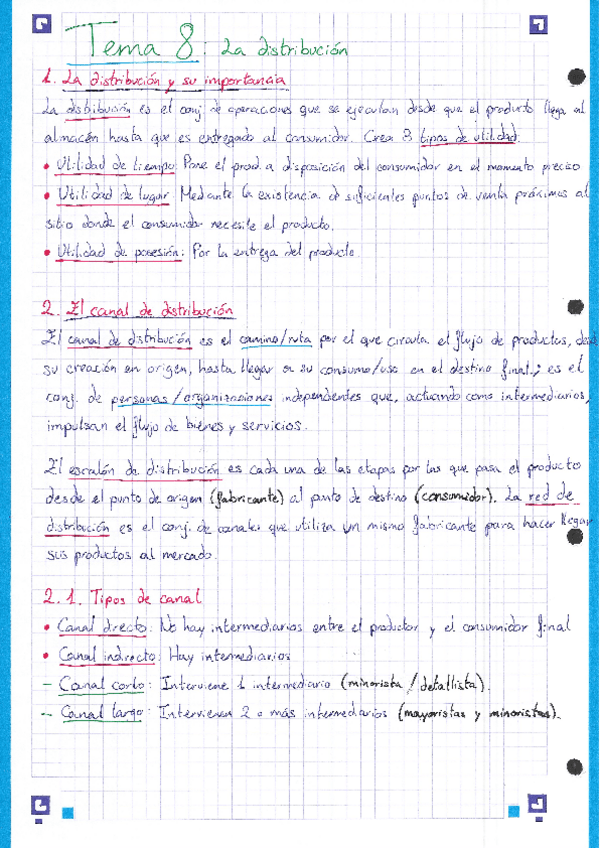 Tema 8: La distribución
1. La distribución y su importancia
La distribución es el conj. de operaciones que se ejecutan desde que el producto llega al
almacén hasta que es entregado al consumidor. Crea 3 tipos de utilidad:
• Utilidad de tiempo: Pone el prod. a disposición del consumidor en el momento preciso
• Utilidad de lugar: Mediante la existencia de suficientes puntos de venta próximos al
sitio donde el consumidor necesite el producto.
• Utilidad de posesión: Por la entrega del producto
2. El canal de distribución
El canal de distribución es el camino/ruta por el que circula el flujo de productos, desde
su creación en origen, hasta llegar a su consumo/uso en el destino final; es el
conj. de personas/organizaciones independientes que, actuando como intermediarios,
impulsan el flujo de bienes y servicios.
El escalón de distribución es cada una de las etapas por las que pasa el producto
desde el punto de origen (fabricante) al punto de destino (consumidor). La red de
distribución es el conj. de canales que utiliza un mismo fabricante para hacer llegar
sus productos al mercado.
2.1. Tipos de canal
• Canal directo: No hay intermediarios entre el productor y el consumidor final
• Canal indirecto: Hay intermediarios
- Canal corto: Interviene 1 intermediario (minorista/detallista).
- Canal largo: Intervienen 2 o más intermediarios (mayoristas y minoristas).